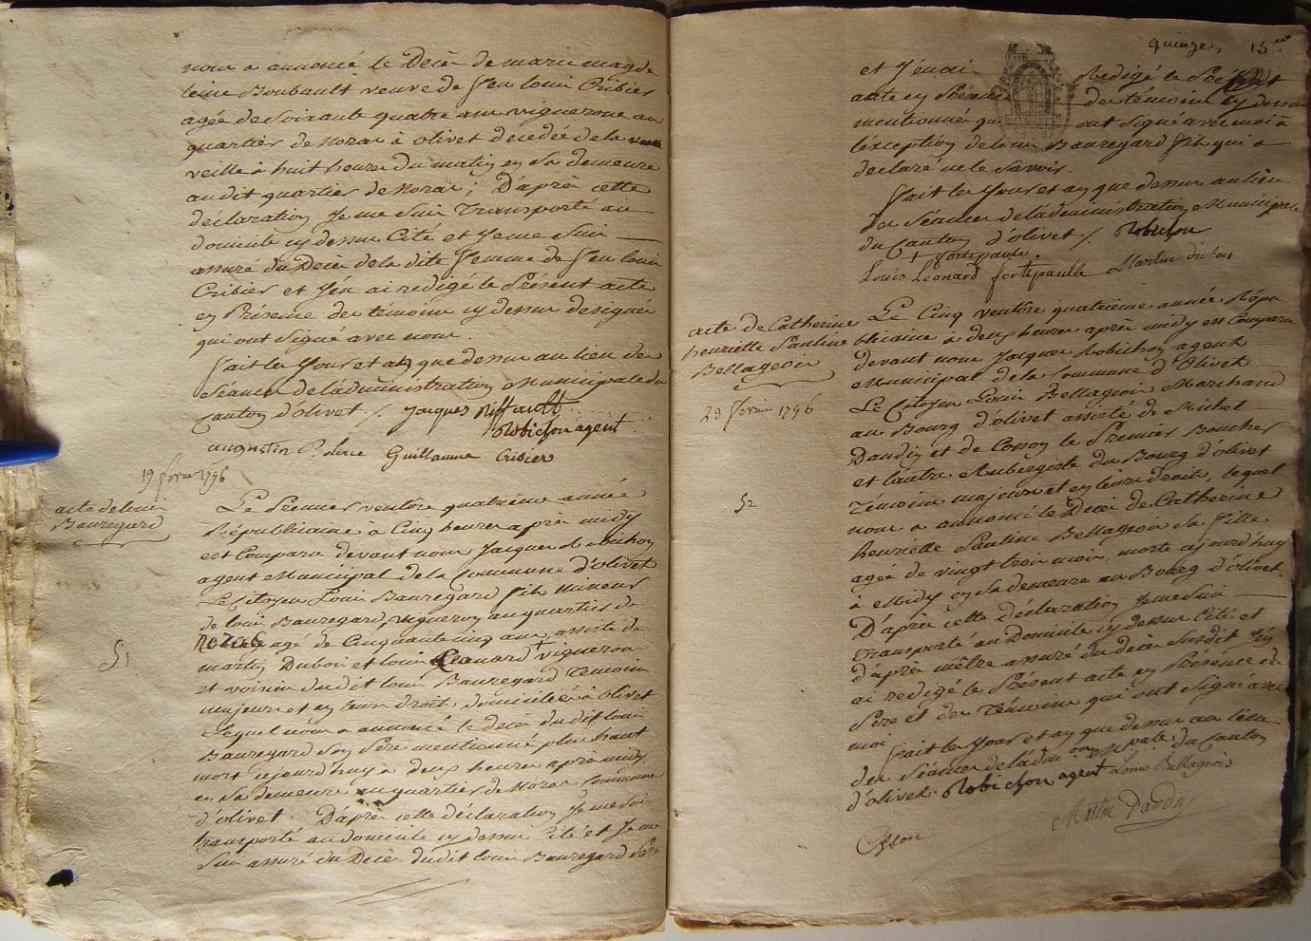 nous a annoncé le Decè de marie magde
leine Boubault veuve de feu louis Cribier
agée de Soixante quatre ans vigneronne au
quartier de Nozai à olivet decedée de la
veille à huit heures du matin en Sa demeure
au dit quartier de Nozai ; D'après cette
declaration Je me Suis Transporté au
domicile cy dessus Cité et Je me Suis
assuré du Decè de la dite femme de feu louis
Cribier et J'en ai redigé le Présent acte
en Présence des témoins cy dessus designés
qui ont Signé avec nous.
fait les Jour et an que dessus au lieu des
Séances de l'administration Municipale du
Canton d'olivet ./. Jacques Riffault
Robichon agent
augustin Guillaume Cribier
19 fevrier 1796
acte de louis
Bauregard
51
Le Premier ventose quatrieme année
Républicaine à Cinq heures après midy
est Comparu devant nous Jacques Robichon
agent Municipal de la Commune d'olivet
Le Citoyen Louis Bauregard fils Mineur
de louis Bauregard vigneron au quartier de
Nozai agé de Cinquante cinq ans, assisté de
martin Dubois et louis Leonard + vigneron
et voisin dudit louis Bauregard temoins
majeurs et en leurs droits domiciliés à olivet
Lequel nous a annoncé le decè du dit louis
Bauregard Son Père mentionné plus haut
mort aujourd'huy à deux heures après midy
en Sa demeure au quartier de Nozai Commune
d'olivet. D'après cette déclaration Je me Suis
transporté au domicile cy dessus Cité et Je me
Suis assuré du Decè dudit louis Bauregard Père
quinze, 15
et J'en ai redigé le Présent
acte en Présence des témoins cy dessus
mentionnés qui ont Signé avec moi à
l'exception de louis Bauregard fils qui a
declaré ne le Savoir.
fait les Jour et an que dessus au lieu
des Séances de l'administration Municipale
du Canton d'olivet ./. Robichon
+ fortepaulle.
Louis Léonard fortepaulle Martin dubois
acte de Catherine
henriette Pauline
Bellageoin
23 fevrier 1796
52
Le Cinq ventose quatrieme année Répu
blicaine à deux heures après midy est Comparu
devant nous Jacques Robichon agent
Municipal de la Commune d'Olivet
Le Citoyen Louis Bellagoin Marchand
au Bourg d'olivet assisté de Michel
Daudin et de Cosson le Premier Boucher
et l'autre Aubergiste du Bourg d'olivet
Témoins majeurs et en leurs droits, lequel
nous a annoncé le Decè de Catherine
henriette Pauline Bellagoin Sa fille
agée de vingt trois mois, morte aujourd'huy
à Midy en Sa demeure au Bourg d'olivet.
D'après cette déclaration Je me Suis
Transporté au Domicile cy dessus Cité et
d'après m'être assuré du decè Susdit J'en
ai redigé le Présent acte en Présence du
Père et des Témoins qui ont Signé avec
moi fait les Jour et an que dessus au lieu
des Séances de l'adon municipale du Canton
d'olivet. Robichon agent Louis Bellagoin
Daudin
Cosson